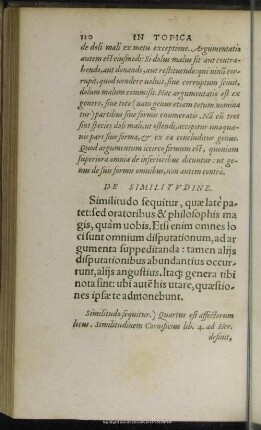 110 IN TOPICA
de doli mali ex metu exceptione. Argumentatio
autem est eiusmodi: Si dolus malus sit aut contra-
hendo, aut donando, aut restituendo: qui uinũ cor-
rupit, quod uendere uoluit, siue corruptum scauit,
dolum malum commisit. Hæc argumentatio est ex
genere, siue toto (nam genus etiam totum nomina
tur) partibus siue formis enumeratis. Nã cũ tres
sint species doli mali, ut ostendi, accipitur unaquæ-
uis pars siue forma, & ex ea concluditur genus.
Quod argumentum iccirco firmum est, quoniam
superiora omnia de inferioribus dicuntur: ut ge-
nus de suis formis omnibus, non autem contra.
DE SIMILITVDINE.
Similitudo sequitur, quæ latè pa-
tet: sed oratoribus & philosophis ma
gis, quàm uobis. Etsi enim omnes lo
ci sunt omnium disputationum, ad ar
gumenta suppeditanda: tamen alijs
disputationibus abundantius occur-
runt, alijs angustius. Itaq; genera tibi
nota sint: ubi autẽ his utare, quæstio-
nes ipsæ te admonebunt.
Similitudo sequitur.) Quartus est affectorum
locus. Similitudinem Cornificius lib. 4. ad Her.
definit,